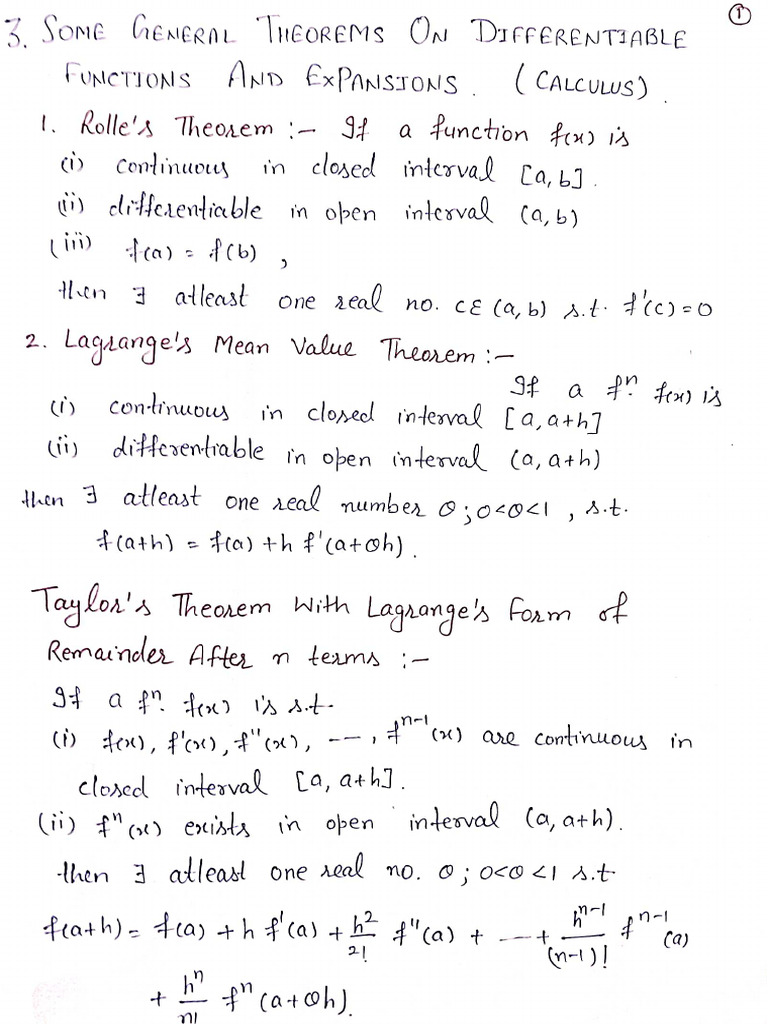 ①
3. SOME GENERAL THEOREMS ON DIFFERENTIABLE
FUNCTIONS AND EXPANSIONS. (CALCULUS).
1. Rolle's Theorem :- If a function f(x) is
(i) continuous in closed interval [a,b].
(ii) differentiable in open interval (a,b)
(iii) f(a) = f(b) ,
then ∃ atleast one real no. cε(a,b) s.t. f'(c)=0
2. Lagrange's Mean Value Theorem :-
If a fⁿ. f(x) is
(i) continuous in closed interval [a,a+h]
(ii) differentiable in open interval (a,a+h)
then ∃ atleast one real number θ; 0<θ<1 , s.t.
f(a+h) = f(a) + h f'(a+θh).
Taylor's Theorem With Lagrange's Form of
Remainder After n terms :-
If a fⁿ. f(x) is s.t.
(i) f(x), f'(x), f''(x), ---, fⁿ⁻¹(x) are continuous in
closed interval [a,a+h].
(ii) fⁿ(x) exists in open interval (a,a+h).
then ∃ atleast one real no. θ; 0<θ<1 s.t
f(a+h) = f(a) + h f'(a) + h²/2! f''(a) + ---+ hⁿ⁻¹/(n-1)! fⁿ⁻¹(a)
+ hⁿ/n! fⁿ(a+θh).